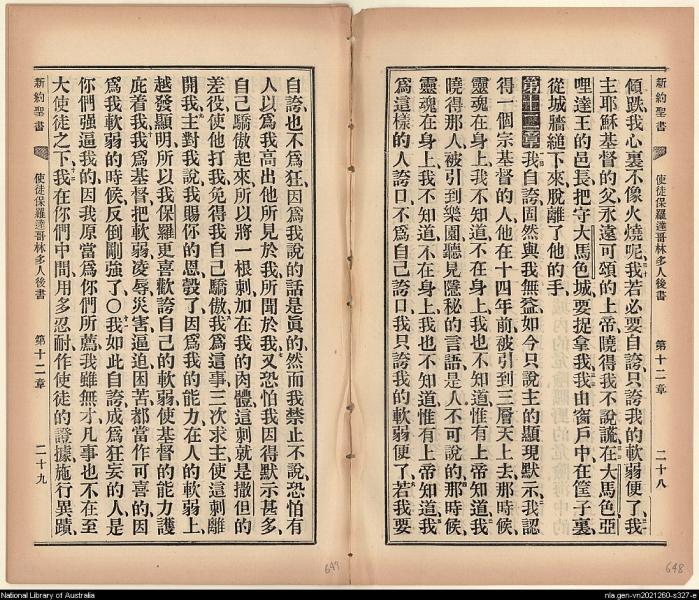 新約聖書 使徒保羅達哥林多人後書 第十二章 二十八
傾跌我心裏不像火燒呢、我若必要自誇只誇我的軟弱便了、我
主耶穌基督的父永遠可頌的上帝曉得我不說謊、在大馬色亞
哩達王的邑長把守大馬色城要捉拿我、我由窗戶中在筐子裏
從城牆縋下來脫離了他的手、
第十二章 我自誇固然與我無益、如今只說主的顯現默示、我認
得一個宗基督的人、他在十四年前被引到三層天上去、那時候、
靈魂在身上我不知道、不在身上、我也不知道、惟有上帝知道、我
曉得那人被引到樂園、聽見隱秘的言語是人不可說的、那時候、
靈魂在身上我不知道、不在身上、我也不知道、惟有上帝知道、我
爲這樣的人誇口、不爲自己誇口、我只誇我的軟弱便了、若我要
自誇也不爲狂、因爲我說的話是眞的、然而我禁止不說、恐怕有
人以爲我高出他所見於我所聞於我、又恐怕我因得默示甚多、
自己驕傲起來、所以將一根刺加在我的肉體、這刺就是撒但的
差役、使他打我、免得我自己驕傲、我爲這事三次求主使這刺離
開我、主對我說、我賜你的恩彀了、因爲我的能力在人的軟弱上、
越發顯明、所以我保羅更喜歡誇自己的軟弱、使基督的能力護
庇着我、我爲基督把軟弱、凌辱、災害、逼迫、困苦、都當作可喜的、因
爲我軟弱的時候、反倒剛強了、〇我如此自誇成爲狂妄的人是
你們強逼我的、因我原當爲你們所薦、我雖無才、凡事也不在至
大使徒之下、我在你們中間用多忍耐作使徒的證據施行異蹟、
新約聖書 使徒保羅達哥林多人後書 第十二章 二十九
649
648
National Library of Australia
nla.gen-vn2021260-s327-e